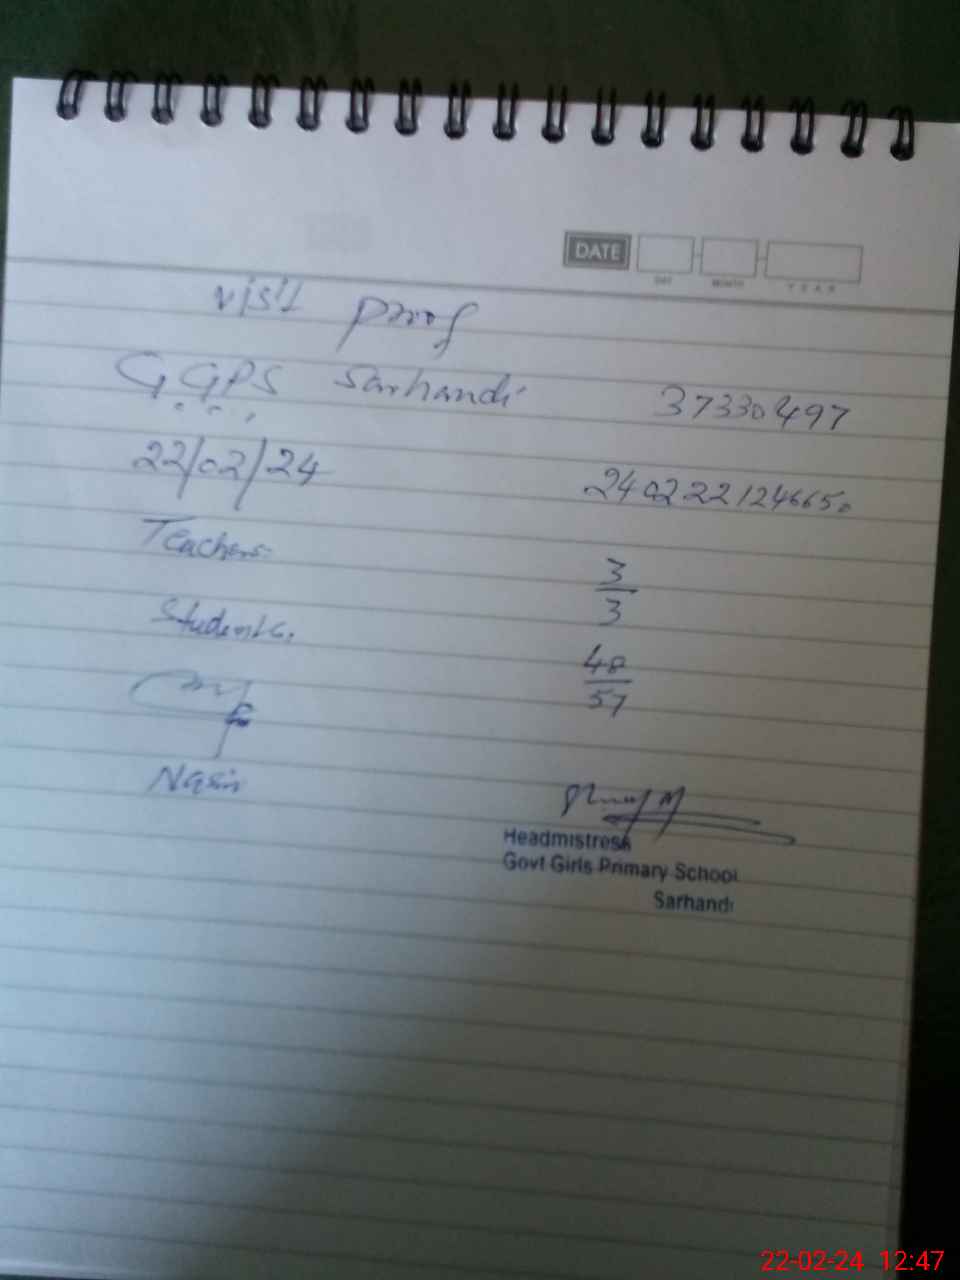 DATE
DAY MONTH YEAR
visit proof
G.G.P.S Sarhandi 37330497
22/02/24 2402221246650
Teachers 3/3
Students. 48/57
Nasir
Headmistress
Govt Girls Primary School
Sarhandi
22-02-24 12:47